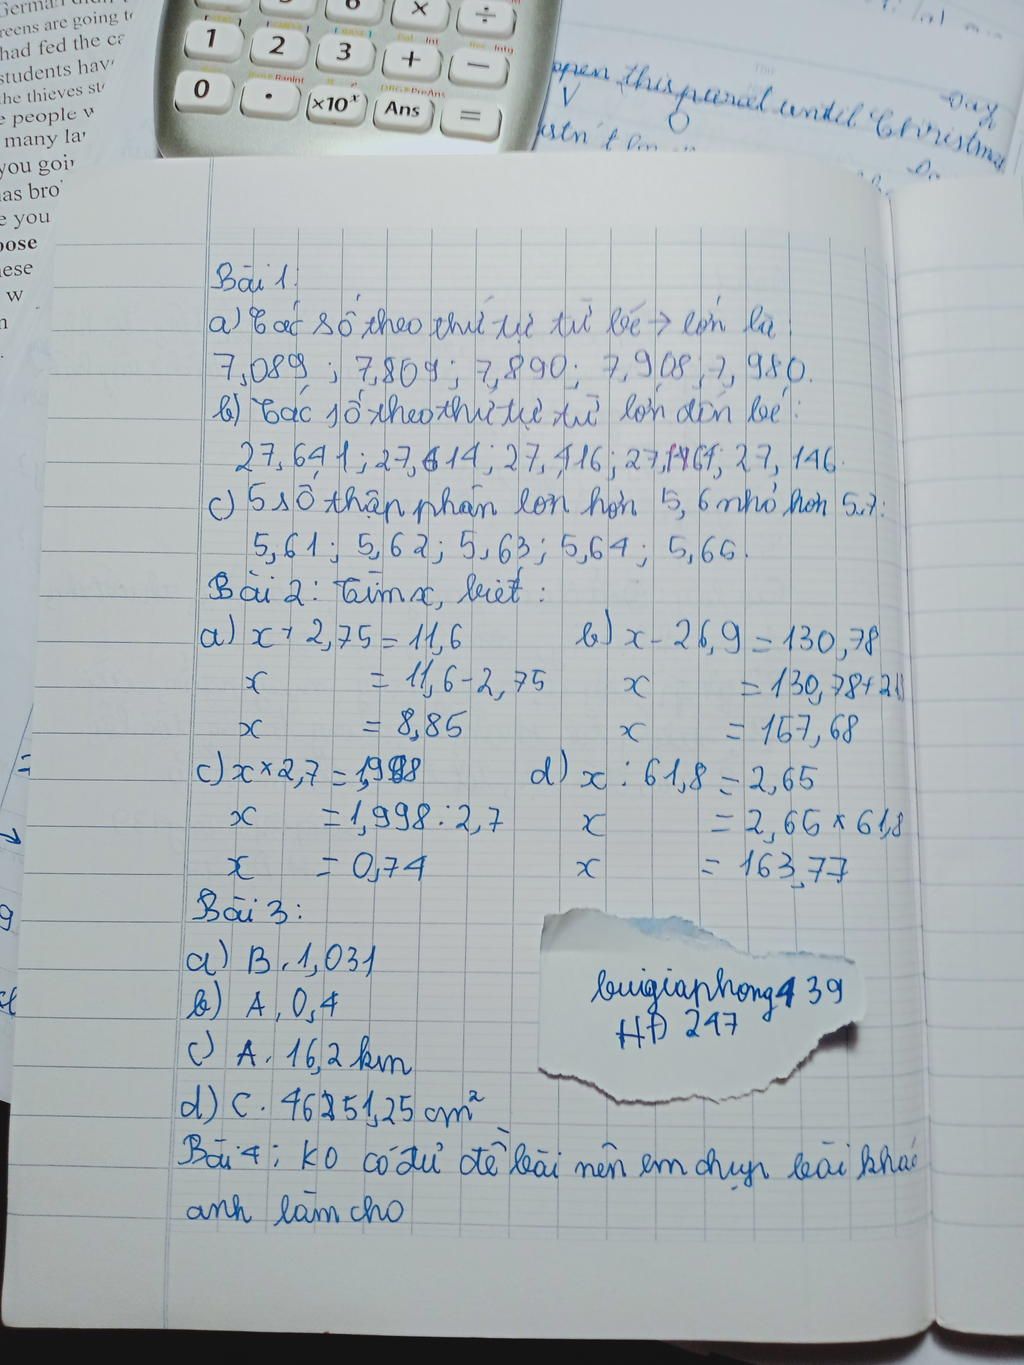 German
reens are going to
had fed the ca
students have
the thieves st
e people w
many la
you goin
as bro
e you
oose
hese
w
1 2 3 + −
0 · ×10ˣ Ans =
open this parcel until Christmas
Day
Bài 1:
a) Các số theo thứ tự từ bé → lớn là
7,089 ; 7,809 ; 7,890 ; 7,908 ; 7,980.
b) Các số theo thứ tự từ lớn đến bé :
27,641 ; 27,614 ; 27,416 ; 27,1461 ; 27,146.
c) 5 số thập phân lớn hơn 5,6 nhỏ hơn 5.7:
5,61 ; 5,62 ; 5,63 ; 5,64 ; 5,65.
Bài 2 : Tìm x, biết :
a) x + 2,75 = 11,6 b) x - 26,9 = 130,78
x = 11,6 - 2,75 x = 130,78 + 2
x = 8,85 x = 157,68
c) x × 2,7 = 1,998 d) x : 61,8 = 2,65
x = 1,998 : 2,7 x = 2,65 × 61,8
x = 0,74 x = 163,77
Bài 3 :
a) B. 1,031
b) A, 0,4
c) A. 16,2 km
d) C. 46251,25 cm²
buigiaphong4 39
HĐ 247
Bài 4 ; KO có đủ đề bài nên em chụp bài khác
anh làm cho